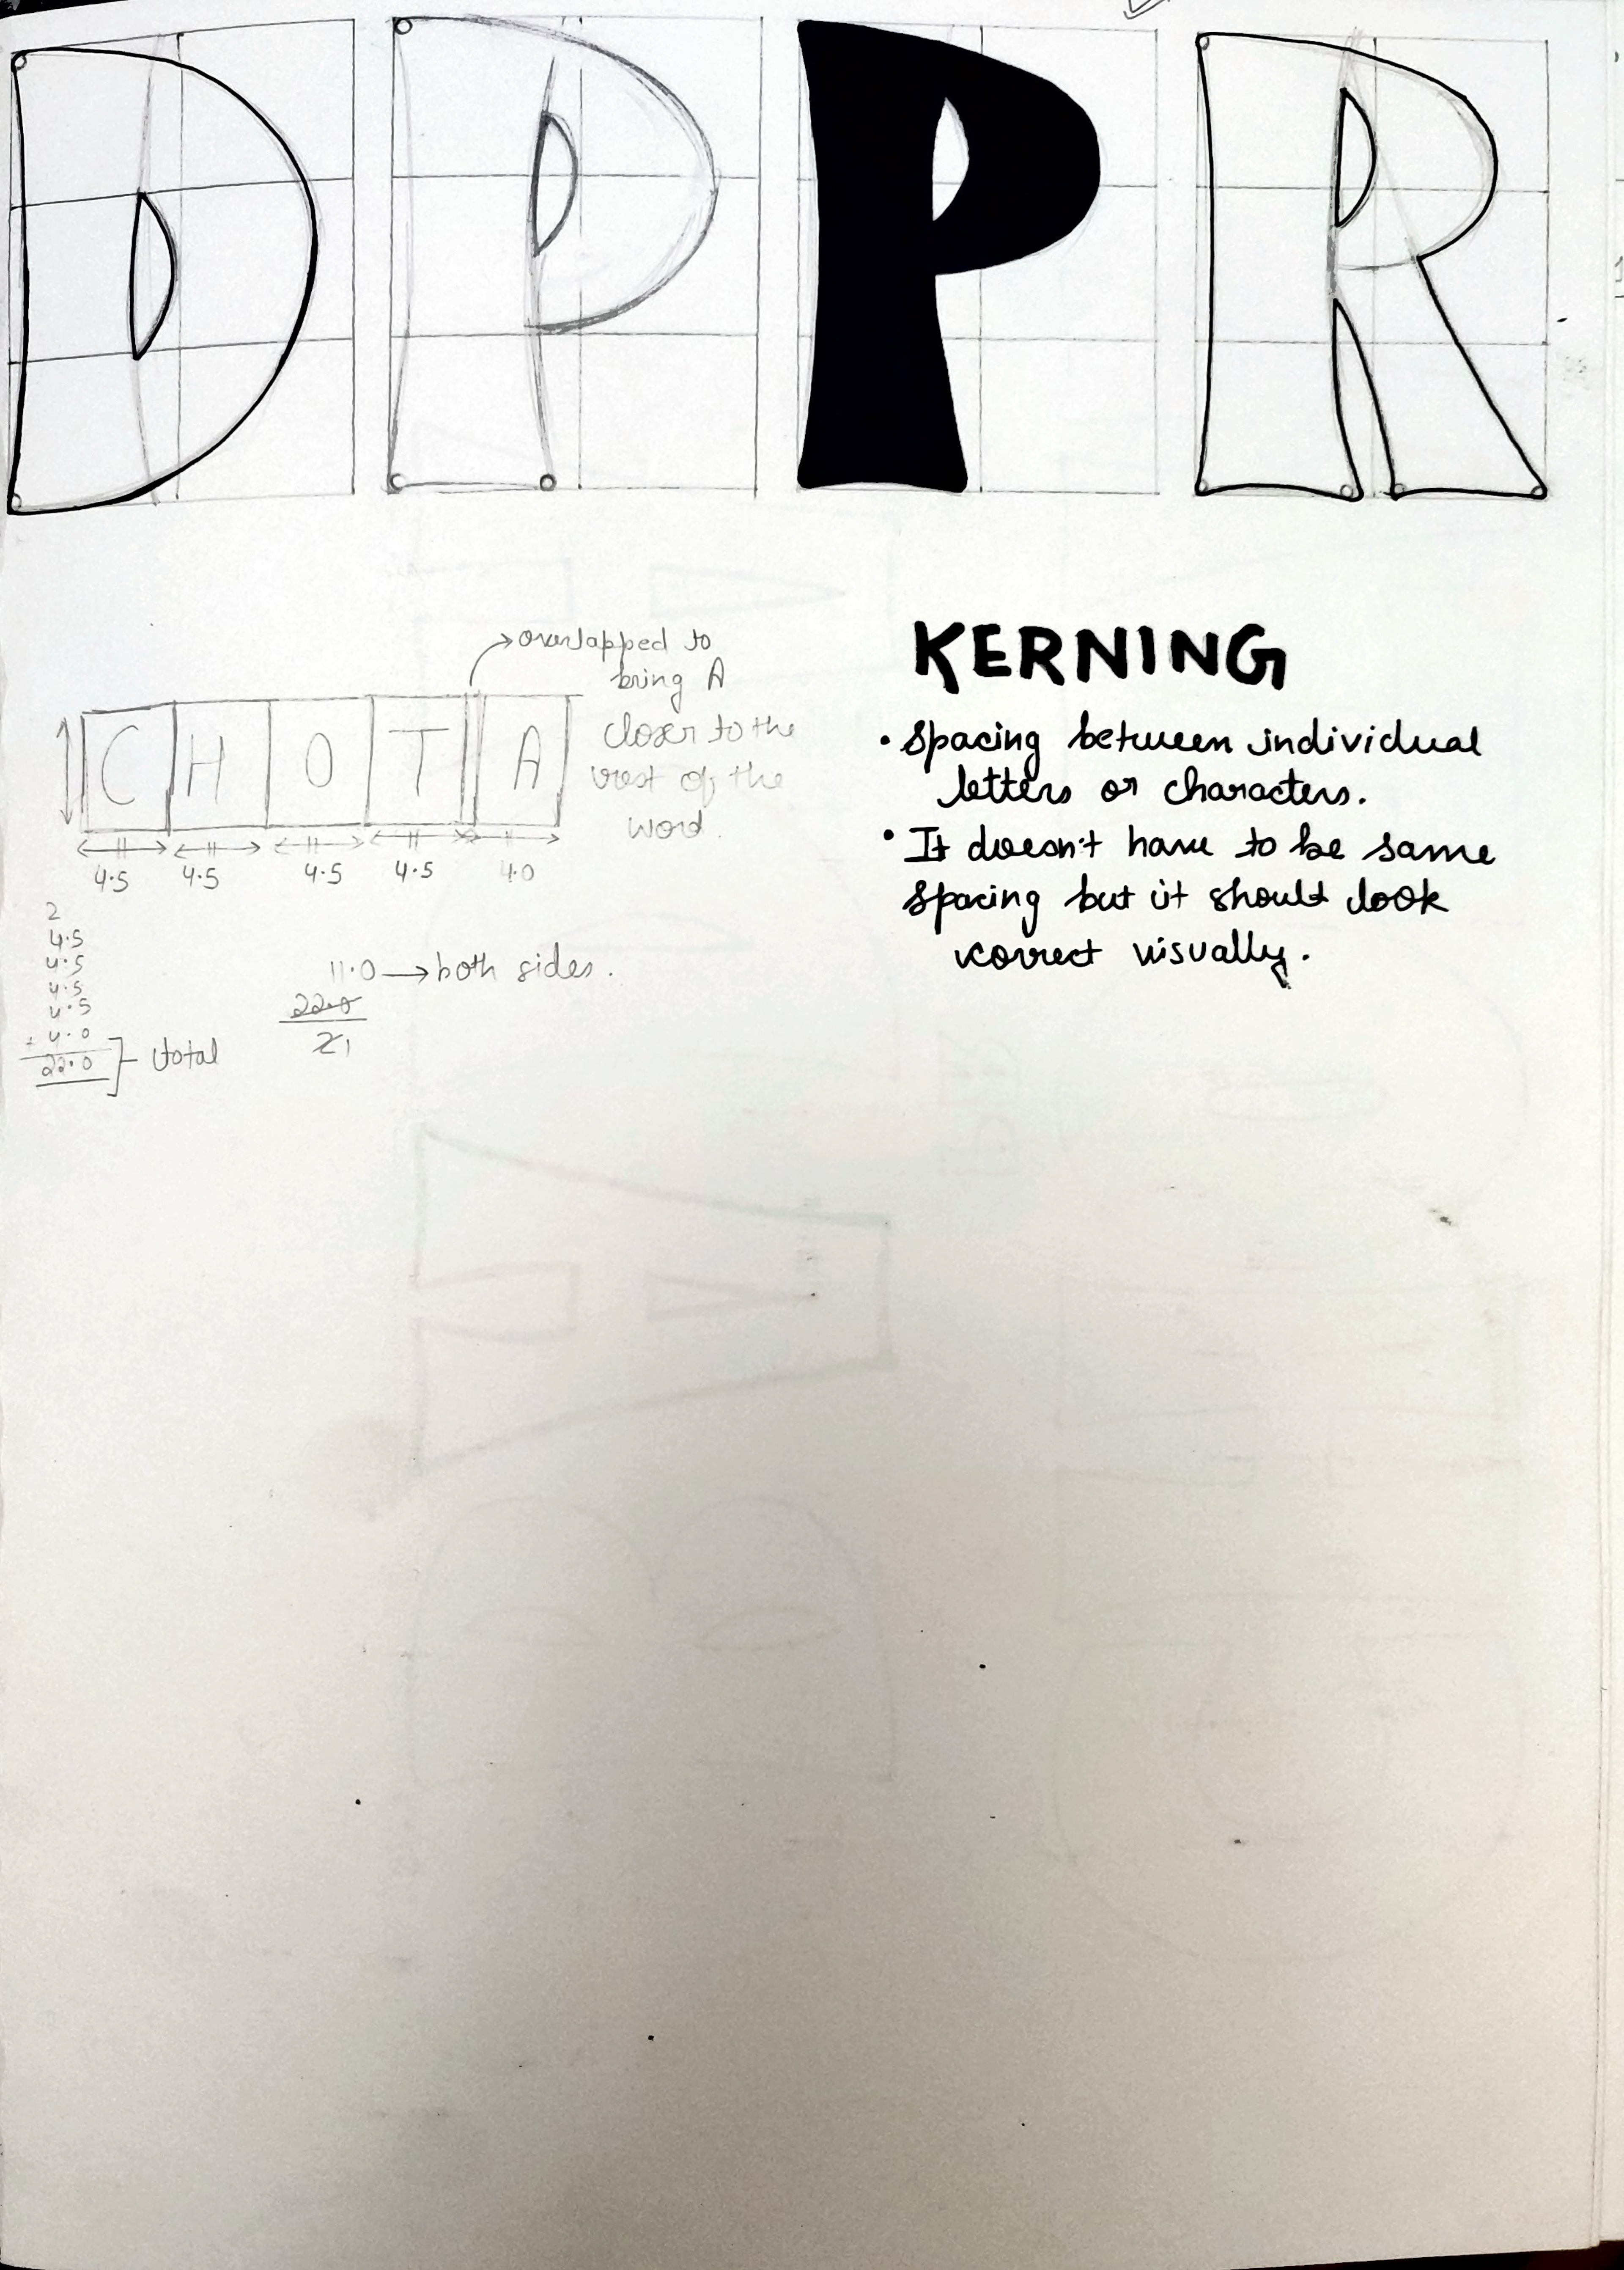 D P P R
→ overlapped to
bring A
closer to the
rest of the
word.
C H O T A
4.5 4.5 4.5 4.5 4.0
KERNING
• Spacing between individual
letters or characters.
• It doesn't have to be same
spacing but it should look
correct visually.
2
4.5
4.5
4.5
4.5
+ 4.0
22.0 total
11.0 → both sides.
22.0
2 1